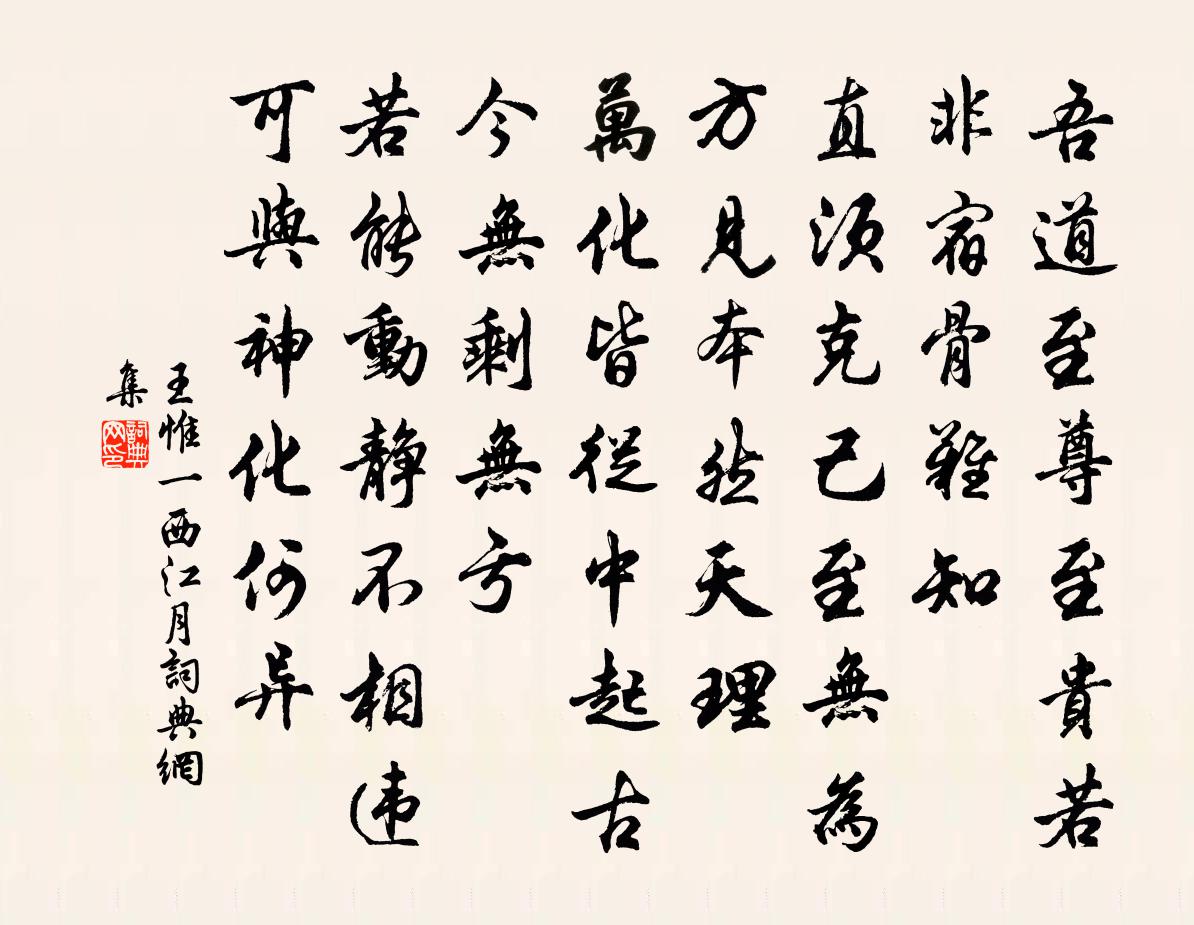 吾道至尊至貴若
非宿骨難知
直須克己至無為
方見本然天理
萬化皆從中起古
今無剩無亏
若能動靜不相違
可與神化何异
王惟一西江月詞典網
集
詞典
网印